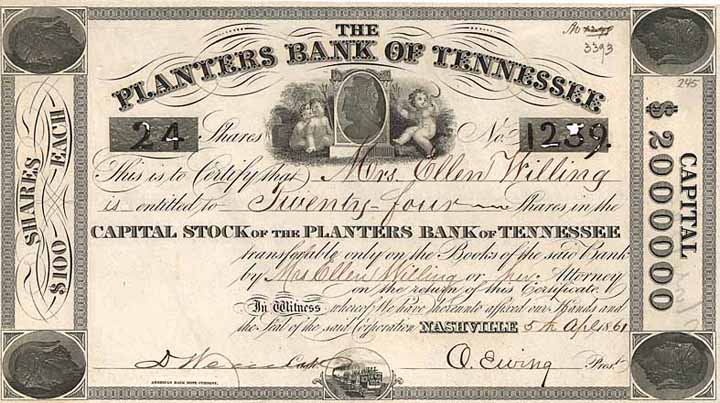 THE
PLANTERS BANK OF TENNESSEE
No
3393
245
24 Shares No. 1239.
This is to Certify that Mrs. Ellen Willing
is entitled to Twenty-four Shares in the
CAPITAL STOCK OF THE PLANTERS BANK OF TENNESSEE
transferable only on the Books of the said Bank
by Mrs Ellen Willing or her Attorney
on the return of this Certificate.
In Witness whereof We have hereunto affixed our Hands and
the Seal of the said Corporation NASHVILLE 5th Apl 1861
Cash. O. Ewing Prest
AMERICAN BANK NOTE COMPANY.
SHARES $100 EACH
CAPITAL $2000000